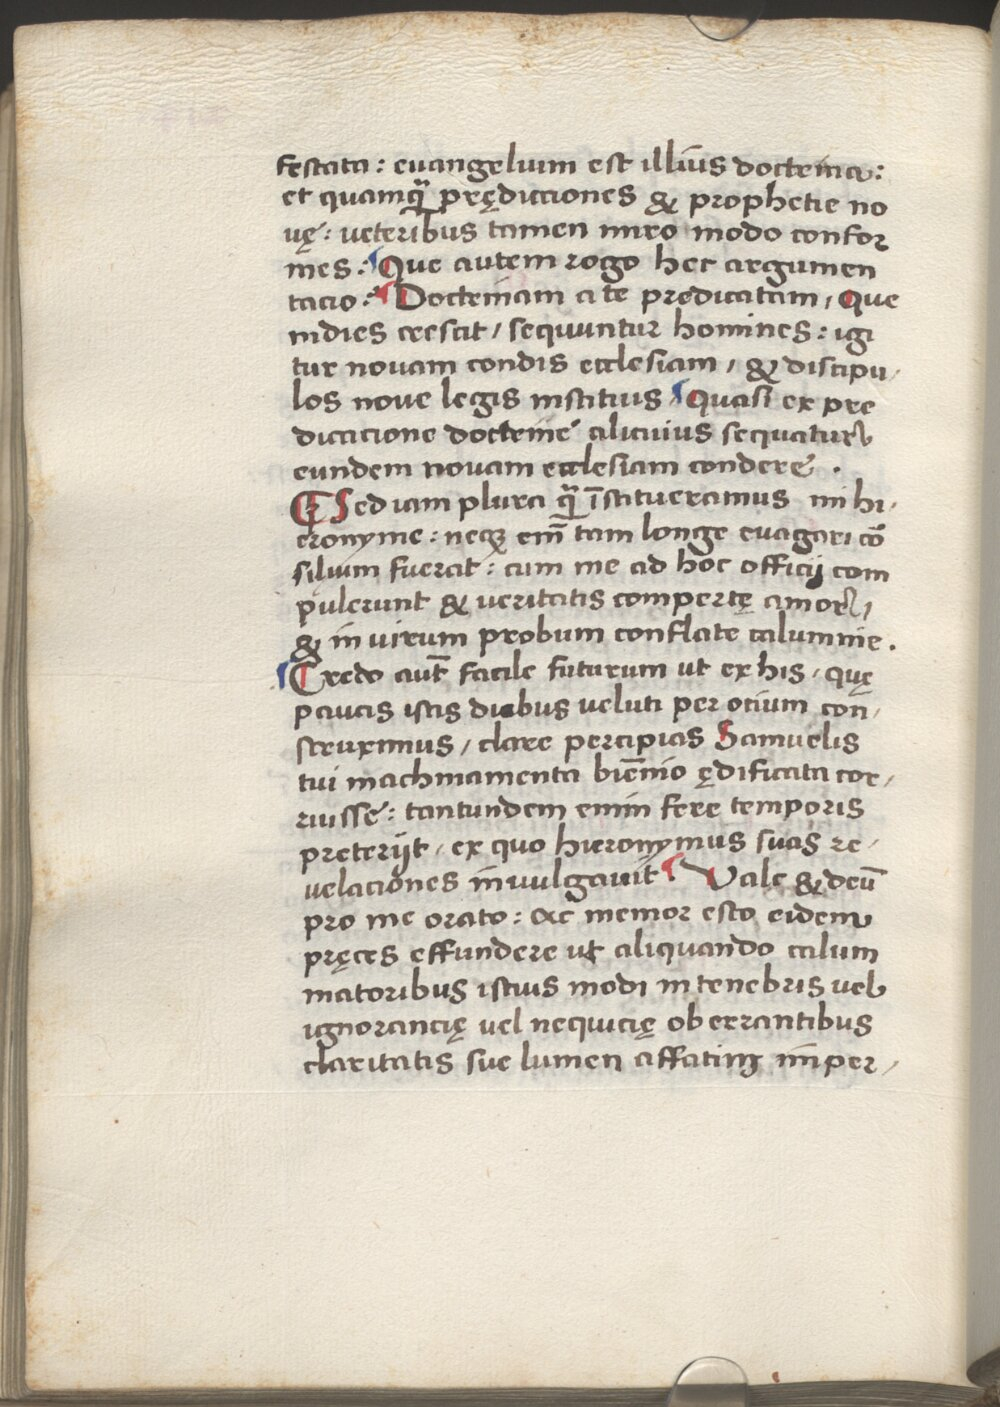 festata: euangelium est illius doctrina:
et quamq̄ prędicciones & prophetie no
uę: ueteribus tamen miro modo confor
mes: Que autem rogo hec argumen
tacio: Doctrinam a te predicatam, Que
indies crescit, sequuntur homines: igi
tur nouam condis ecclesiam, & discipu,
los noue legis institius, Quasi ex pre
dicacione doctrine alicuius sequatur
eundem nouam ecclesiam condere.
Sed iam plura q̄ īstitueramus mi hi,
eronyme: neqꝫ em̄ tam longe euagari cō
silium fuerat: cum me ad hoc officij com
pulerunt & ueritatis compertę amor,
& in uirum probum conflate calumnie.
Credo aut̄ facile futurum ut ex his, quę
paucis istis diebus ueluti per ocium con,
struximus, clare percipias Samuelis
tui machinamenta biēnio ędificata cor,
ruisse: tantundem enim fere temporis
preterijt, ex quo hieronymus suas re,
uelaciones inuulgauit Vale & deū
pro me orato: ac memor esto eidem
pręces effundere ut aliquando calum
niatoribus istius modi in tenebris uel
ignorancię uel nequicię oberrantibus
claritatis sue lumen affatim imper,